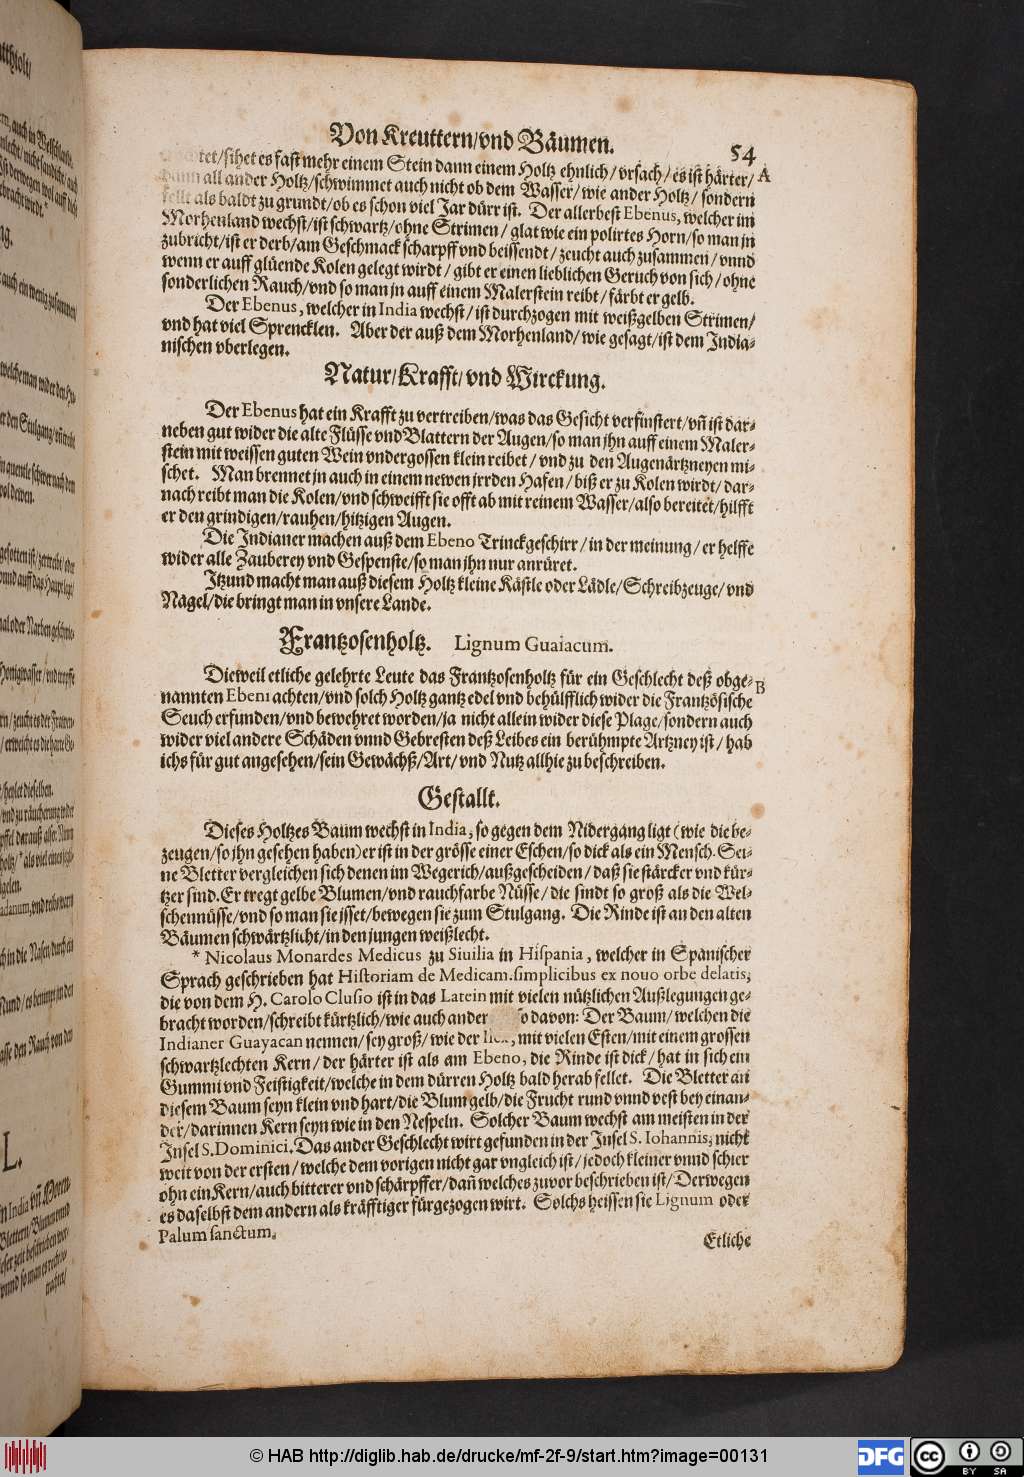 Von Kreuttern/vnd Bäumen. 54
tet/sihet es fast mehr einem Stein dann einem Holtz ehnlich/vrsach/es ist härter/ A
dann all ander Holtz/schwimmet auch nicht ob dem Wasser/wie ander Holtz/sondern
fellt als baldt zu grundt/ob es schon viel Jar dürr ist. Der allerbest Ebenus, welcher im
Morhenland wechst/ist schwartz/ohne Strimen/glat wie ein polirtes Horn/so man jn
zubricht/ist er derb/am Geschmack scharpff vnd beissendt/zeucht auch zusammen/vnnd
wenn er auff glüende Kolen gelegt wirdt/gibt er einen lieblichen Geruch von sich/ohne
sonderlichen Rauch/vnd so man jn auff einem Malerstein reibt/färbt er gelb.
Der Ebenus, welcher in India wechst/ist durchzogen mit weißgelben Strimen/
vnd hat viel Sprencklen. Aber der auß dem Morhenland/wie gesagt/ist dem India-
nischen vberlegen.
Natur/Krafft/vnd Wirckung.
Der Ebenus hat ein Krafft zu vertreiben/was das Gesicht verfinstert/vñ ist dar-
neben gut wider die alte Flüsse vnd Blattern der Augen/so man jhn auff einem Maler-
stein mit weissen guten Wein vndergossen klein reibet/vnd zu den Augenärtzneyen mi-
schet. Man brennet jn auch in einem newen jrrden Hafen/biß er zu Kolen wirdt/dar-
nach reibt man die Kolen/vnd schweifft sie offt ab mit reinem Wasser/also bereitet/hilfft
er den grindigen/rauhen/hitzigen Augen.
Die Indianer machen auß dem Ebeno Trinckgeschirr/in der meinung/er helffe
wider alle Zauberey vnd Gespenste/so man jhn nur anrüret.
Jtzund macht man auß diesem Holtz kleine Kästle oder Lädle/Schreibzeuge/vnd
Nägel/die bringt man in vnsere Lande.
Frantzosenholtz. Lignum Guaiacum.
Dieweil etliche gelehrte Leute das Frantzosenholtz für ein Geschlecht deß obge- B
nannten Ebeni achten/vnd solch Holtz gantz edel vnd behülfflich wider die Frantzösische
Seuch erfunden/vnd bewehret worden/ja nicht allein wider diese Plage/sondern auch
wider viel andere Schäden vnnd Gebresten deß Leibes ein berühmpte Artzney ist/hab
ichs für gut angesehen/sein Gewächß/Art/vnd Nutz allhie zu beschreiben.
Gestallt.
Dieses Holtzes Baum wechst in India, so gegen dem Nidergang ligt (wie die be-
zeugen/so jhn gesehen haben) er ist in der grösse einer Eschen/so dick als ein Mensch. Sei-
ne Bletter vergleichen sich denen im Wegerich/außgescheiden/daß sie stärcker vnd kür-
tzer sind. Er tregt gelbe Blumen/vnd rauchfarbe Nüsse/die sindt so groß als die Wel-
schennüsse/vnd so man sie jsset/bewegen sie zum Stulgang. Die Rinde ist an den alten
Bäumen schwärtzlicht/in den jungen weißlecht.
* Nicolaus Monardes Medicus zu Siuilia in Hispania, welcher in Spanischer
Sprach geschrieben hat Historiam de Medicam. simplicibus ex nouo orbe delatis,
die von dem H. Carolo Clusio ist in das Latein mit vielen nützlichen Außlegungen ge-
bracht worden/schreibt kürtzlich/wie auch ander so davon: Der Baum/welchen die
Indianer Guayacan nennen/sey groß/wie der Ilex, mit vielen Esten/mit einem grossen
schwartzlechten Kern/der härter ist als am Ebeno, die Rinde ist dick/hat in sich ein
Gummi vnd Feistigkeit/welche in dem dürren Holtz bald herab fellet. Die Bletter an
diesem Baum seyn klein vnd hart/die Blum gelb/die Frucht rund vnnd vest bey einan-
der/darinnen Kern seyn wie in den Nespeln. Solcher Baum wechst am meisten in der
Insel S. Dominici. Das ander Geschlecht wirt gefunden in der Insel S. Iohannis, nicht
weit von der ersten/welche dem vorigen nicht gar vngleich ist/jedoch kleiner vnnd schier
ohn ein Kern/auch bitterer vnd schärpffer/dañ welches zuvor beschrieben ist/Derwegen
es daselbst dem andern als kräfftiger fürgezogen wirt. Solchs heissen sie Lignum oder
Palum sanctum.
Etliche
© HAB http://diglib.hab.de/drucke/mf-2f-9/start.htm?image=00131
DFG
cc BY SA